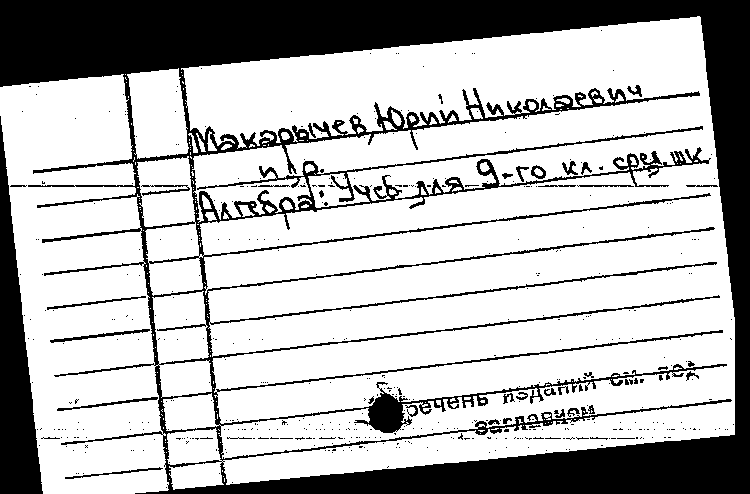 Макарычев, Юрий Николаевич
и др.
Алгебра: Учеб. для 9-го кл. сред. шк.
речень изданий см. под
заглавием